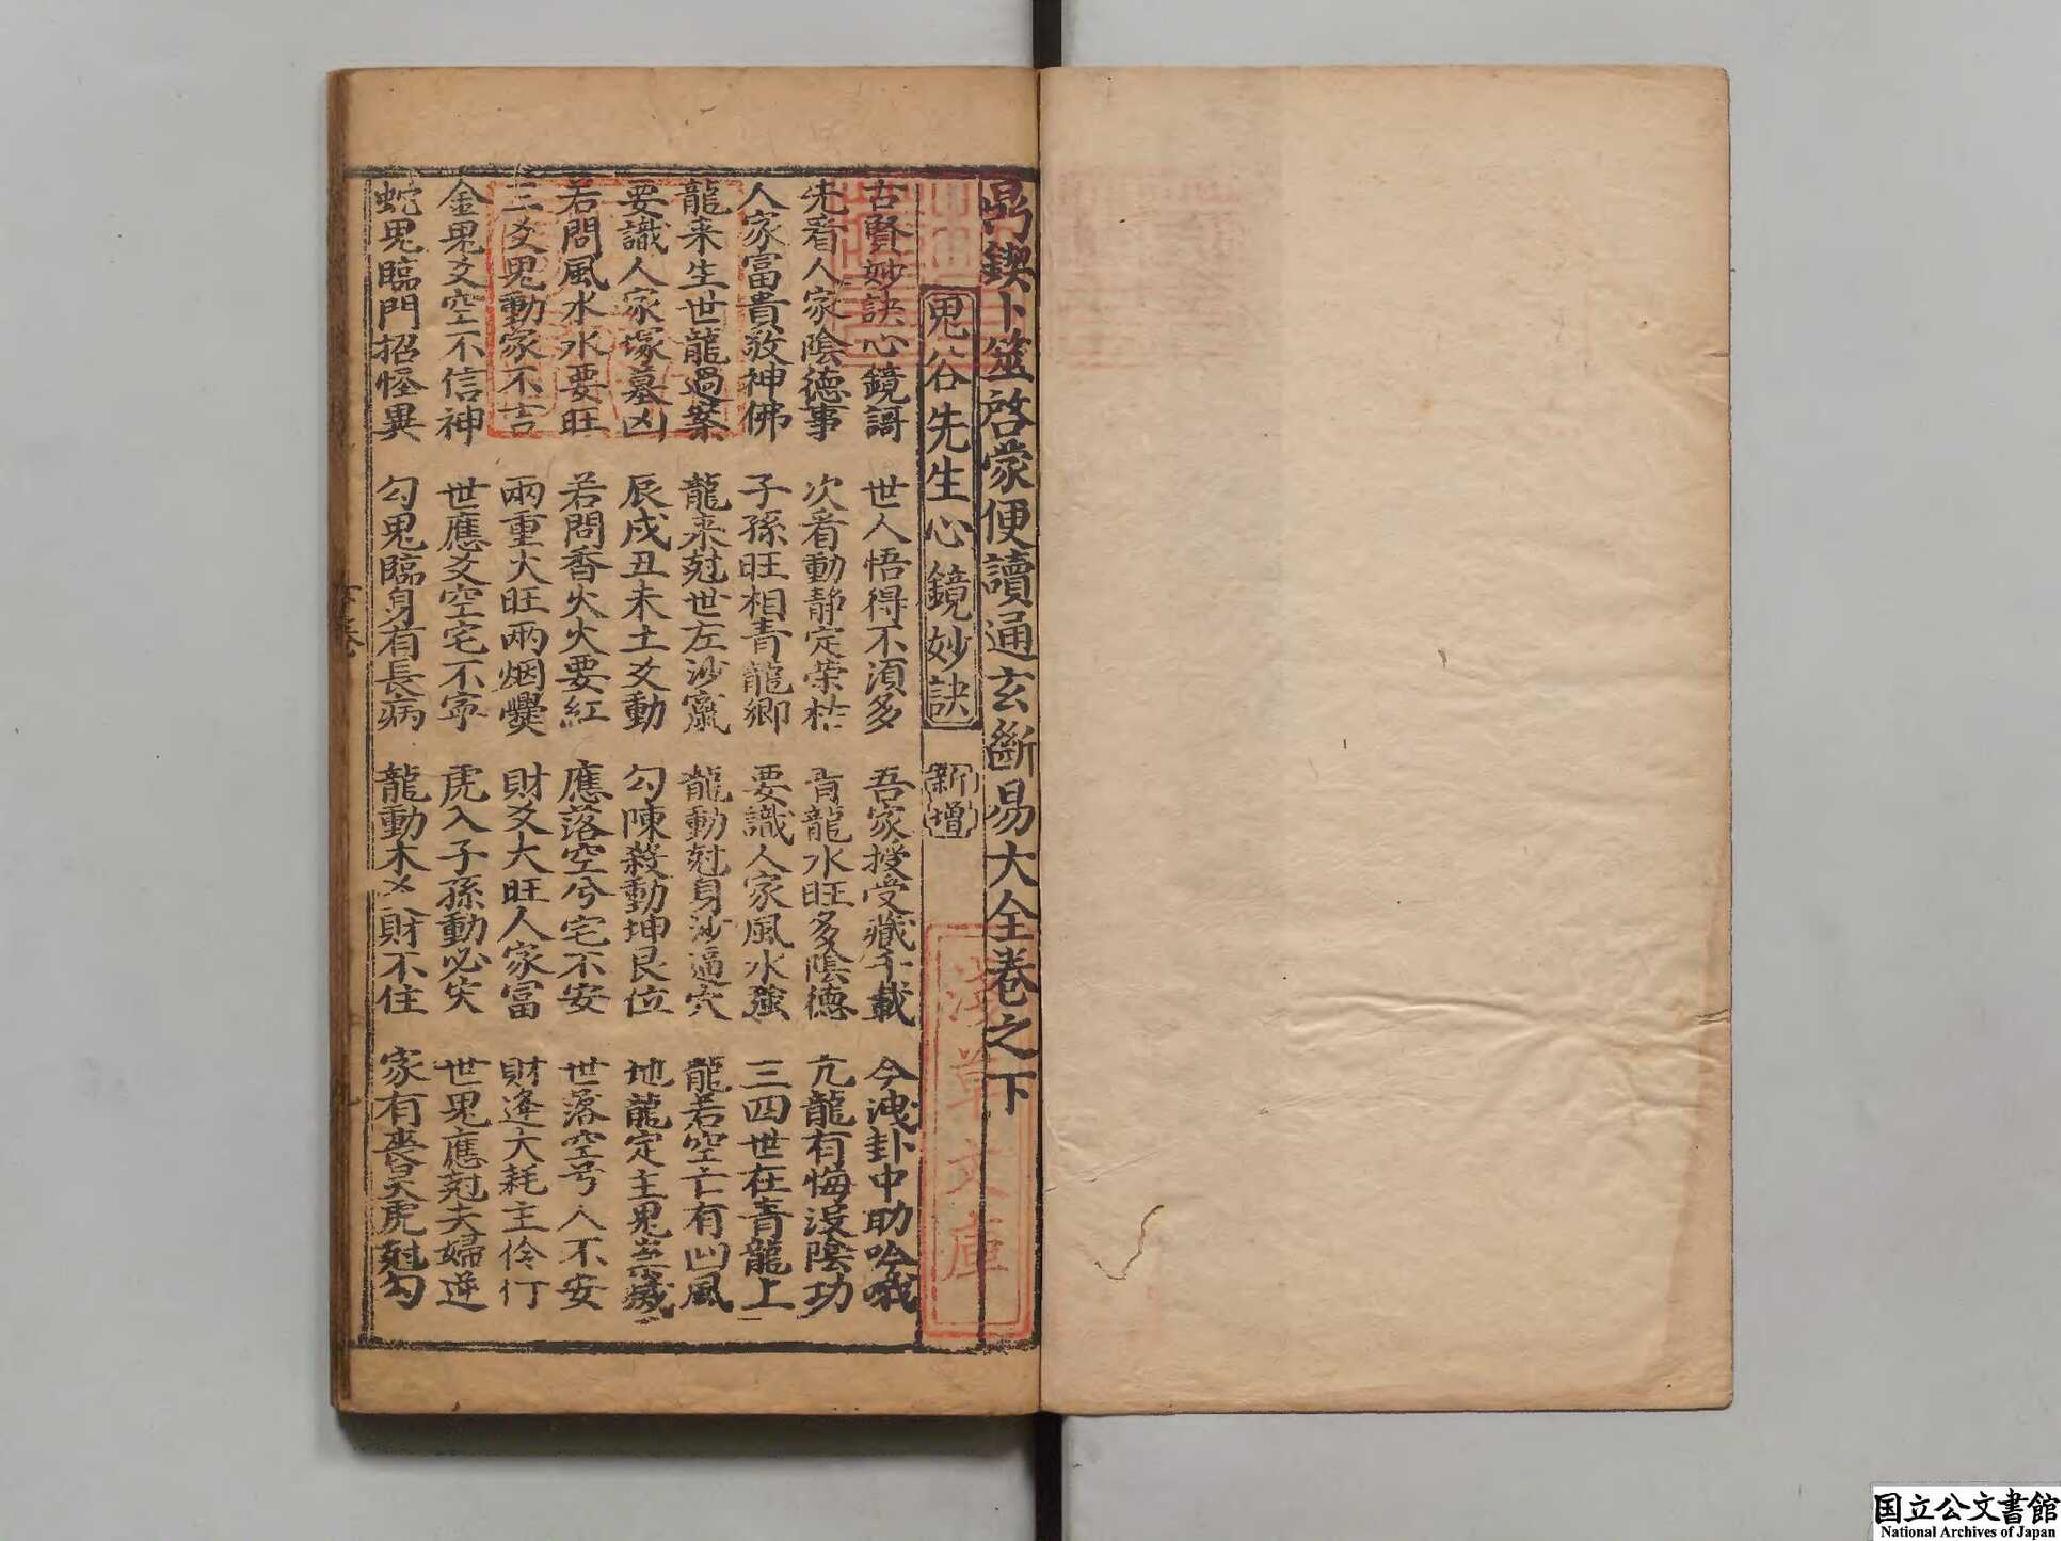 鼎鍥卜筮啓蒙便讀通玄斷易大全卷之下
鬼谷先生心鏡妙訣 新增
古賢妙訣心鏡謌 世人悟得不須多 吾家授受藏千載 今洩卦中助吟哦
先看人家陰德事 次看動静定荣枯 青龍水旺多陰德 亢龍有悔没陰功
人家富貴敬神佛 子孫旺相青龍卿 要識人家風水強 三四世在青龍上
龍来生世龍過案 龍来尅世左沙窩 龍動尅身沙逼穴 龍若空亡有凹風
要識人家塚墓凶 辰戌丑未土爻動 勾陳殺動坤艮位 地龍定主鬼祟藏
若問風水水要旺 若問香火火要紅 應落空兮宅不安 世落空号人不安
二爻鬼動家不吉 兩重火旺兩烟爨 財爻大旺人家富 財逢大耗主伶仃
金鬼爻空不信神 世應爻空宅不寜 虎入子孫動必灾 世鬼應尅夫婦逆
蛇鬼臨門招怪異 勾鬼臨身有長病 龍動木爻財不住 家有喪哭虎尅勾
淺草文庫
国立公文書館
National Archives of Japan